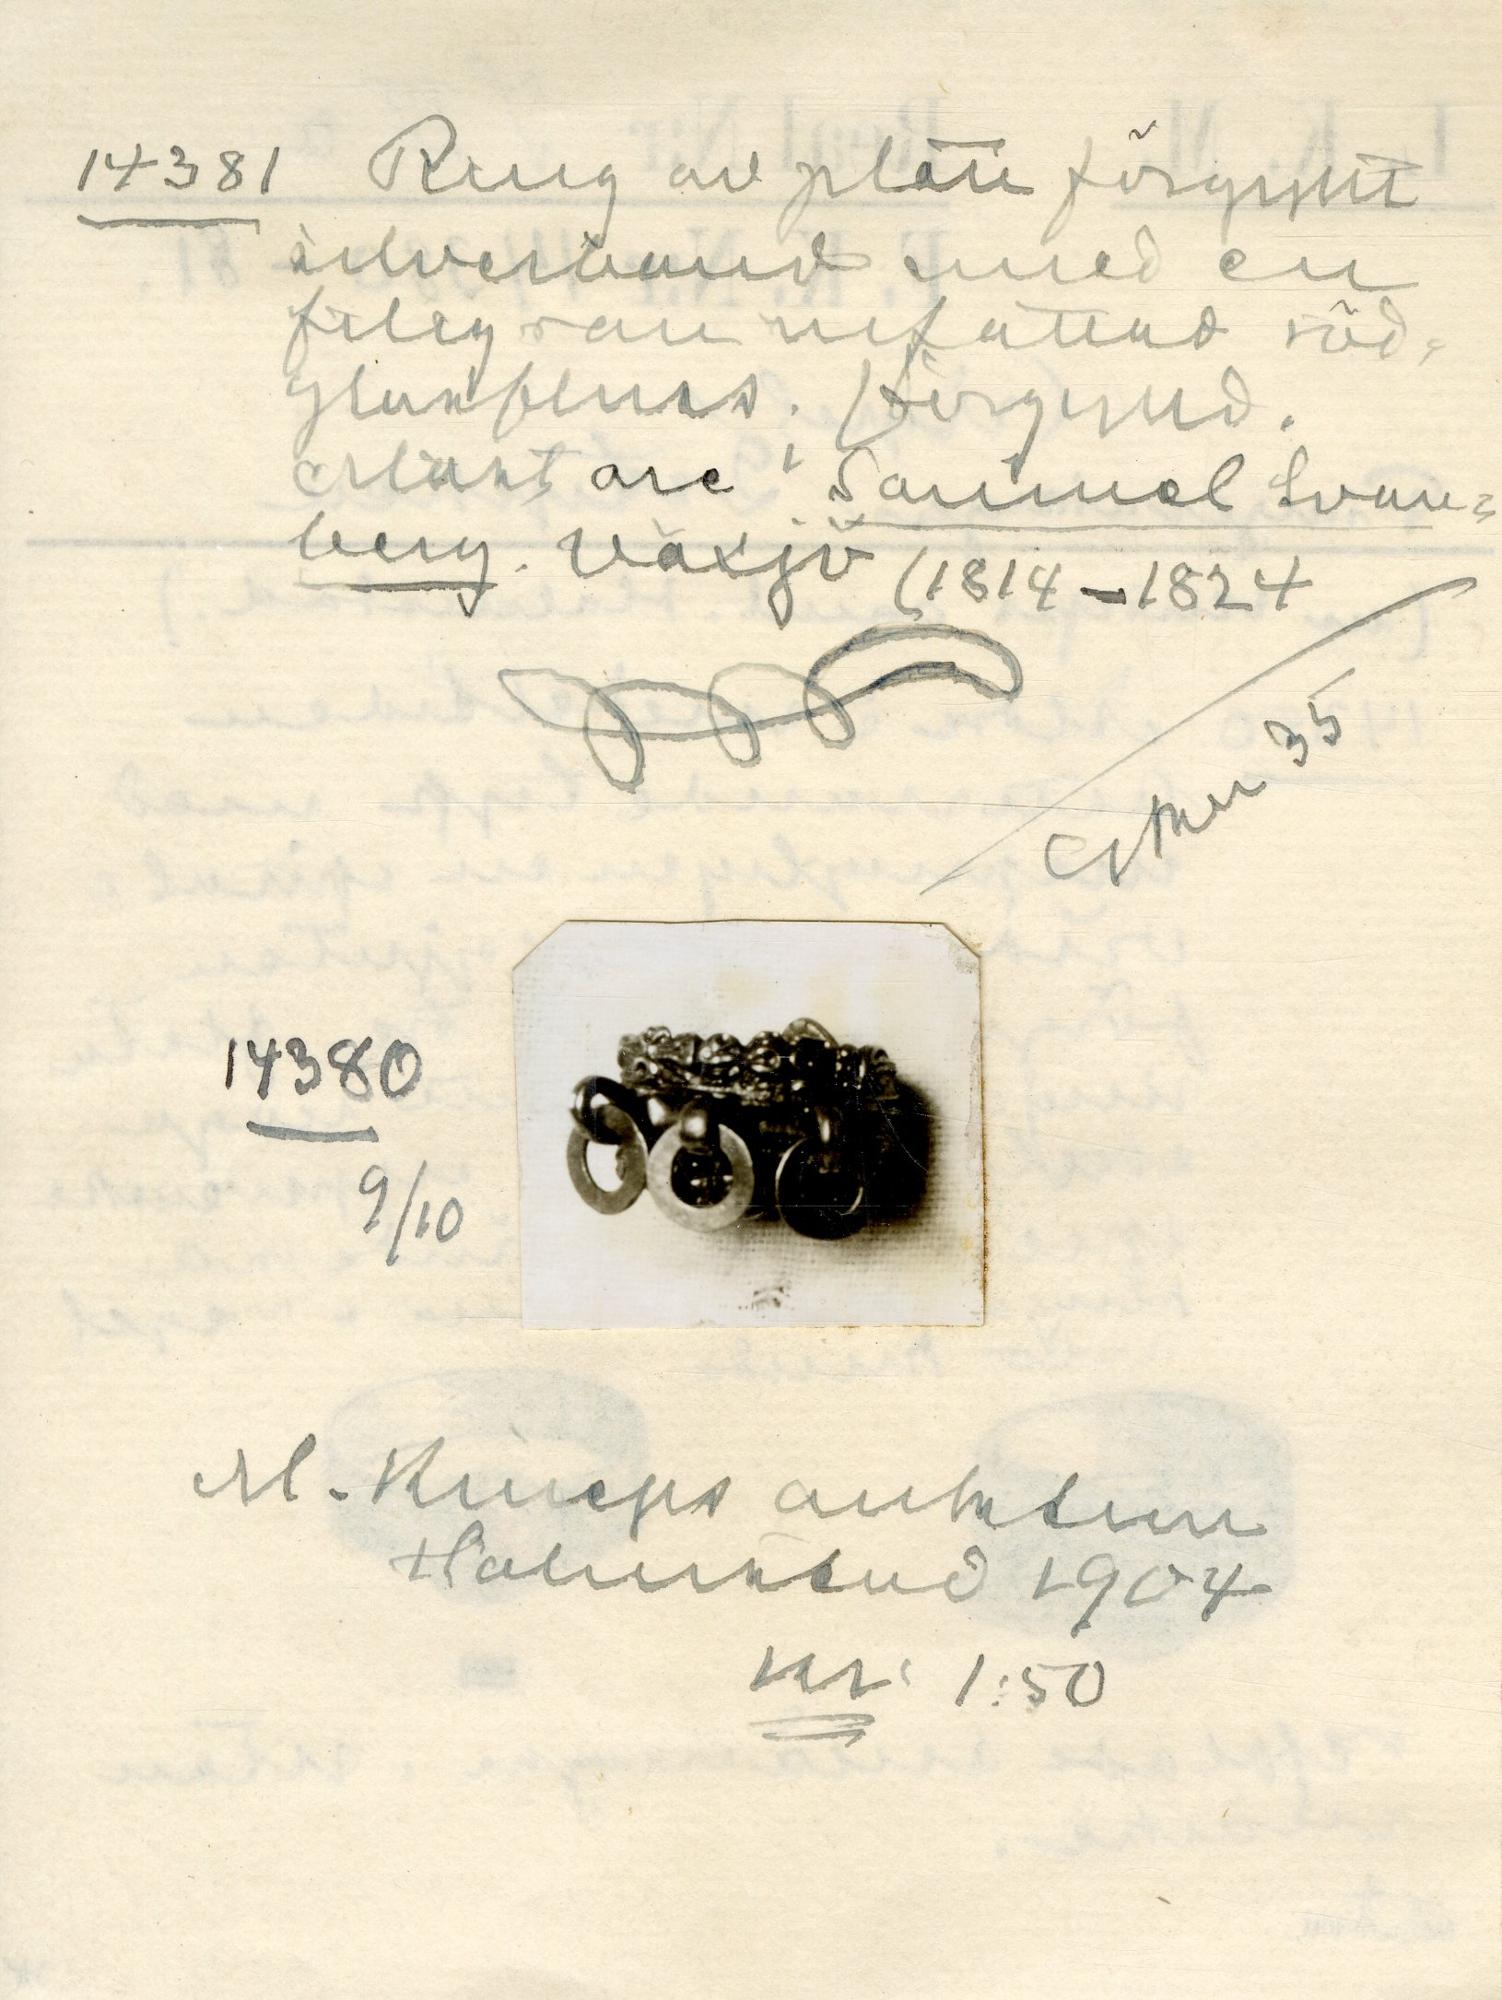 14381 Ring av platt förgyllt
silverband med en
filigraninfattad röd-
glasfluss. Förgylld.
Mästare: Samuel Svan=
berg. Växjö (1814-1824
14380
9/10
M. Knieps auktion
Halmstad 1904
kr: 1:50